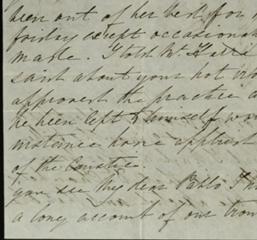 been out of her bed for
fairly except occasional
made. I told Mr.
said about your not
approves the practice
he been left to himself
instance have
of the Country.
you see my dear Pablo I
a long account of our